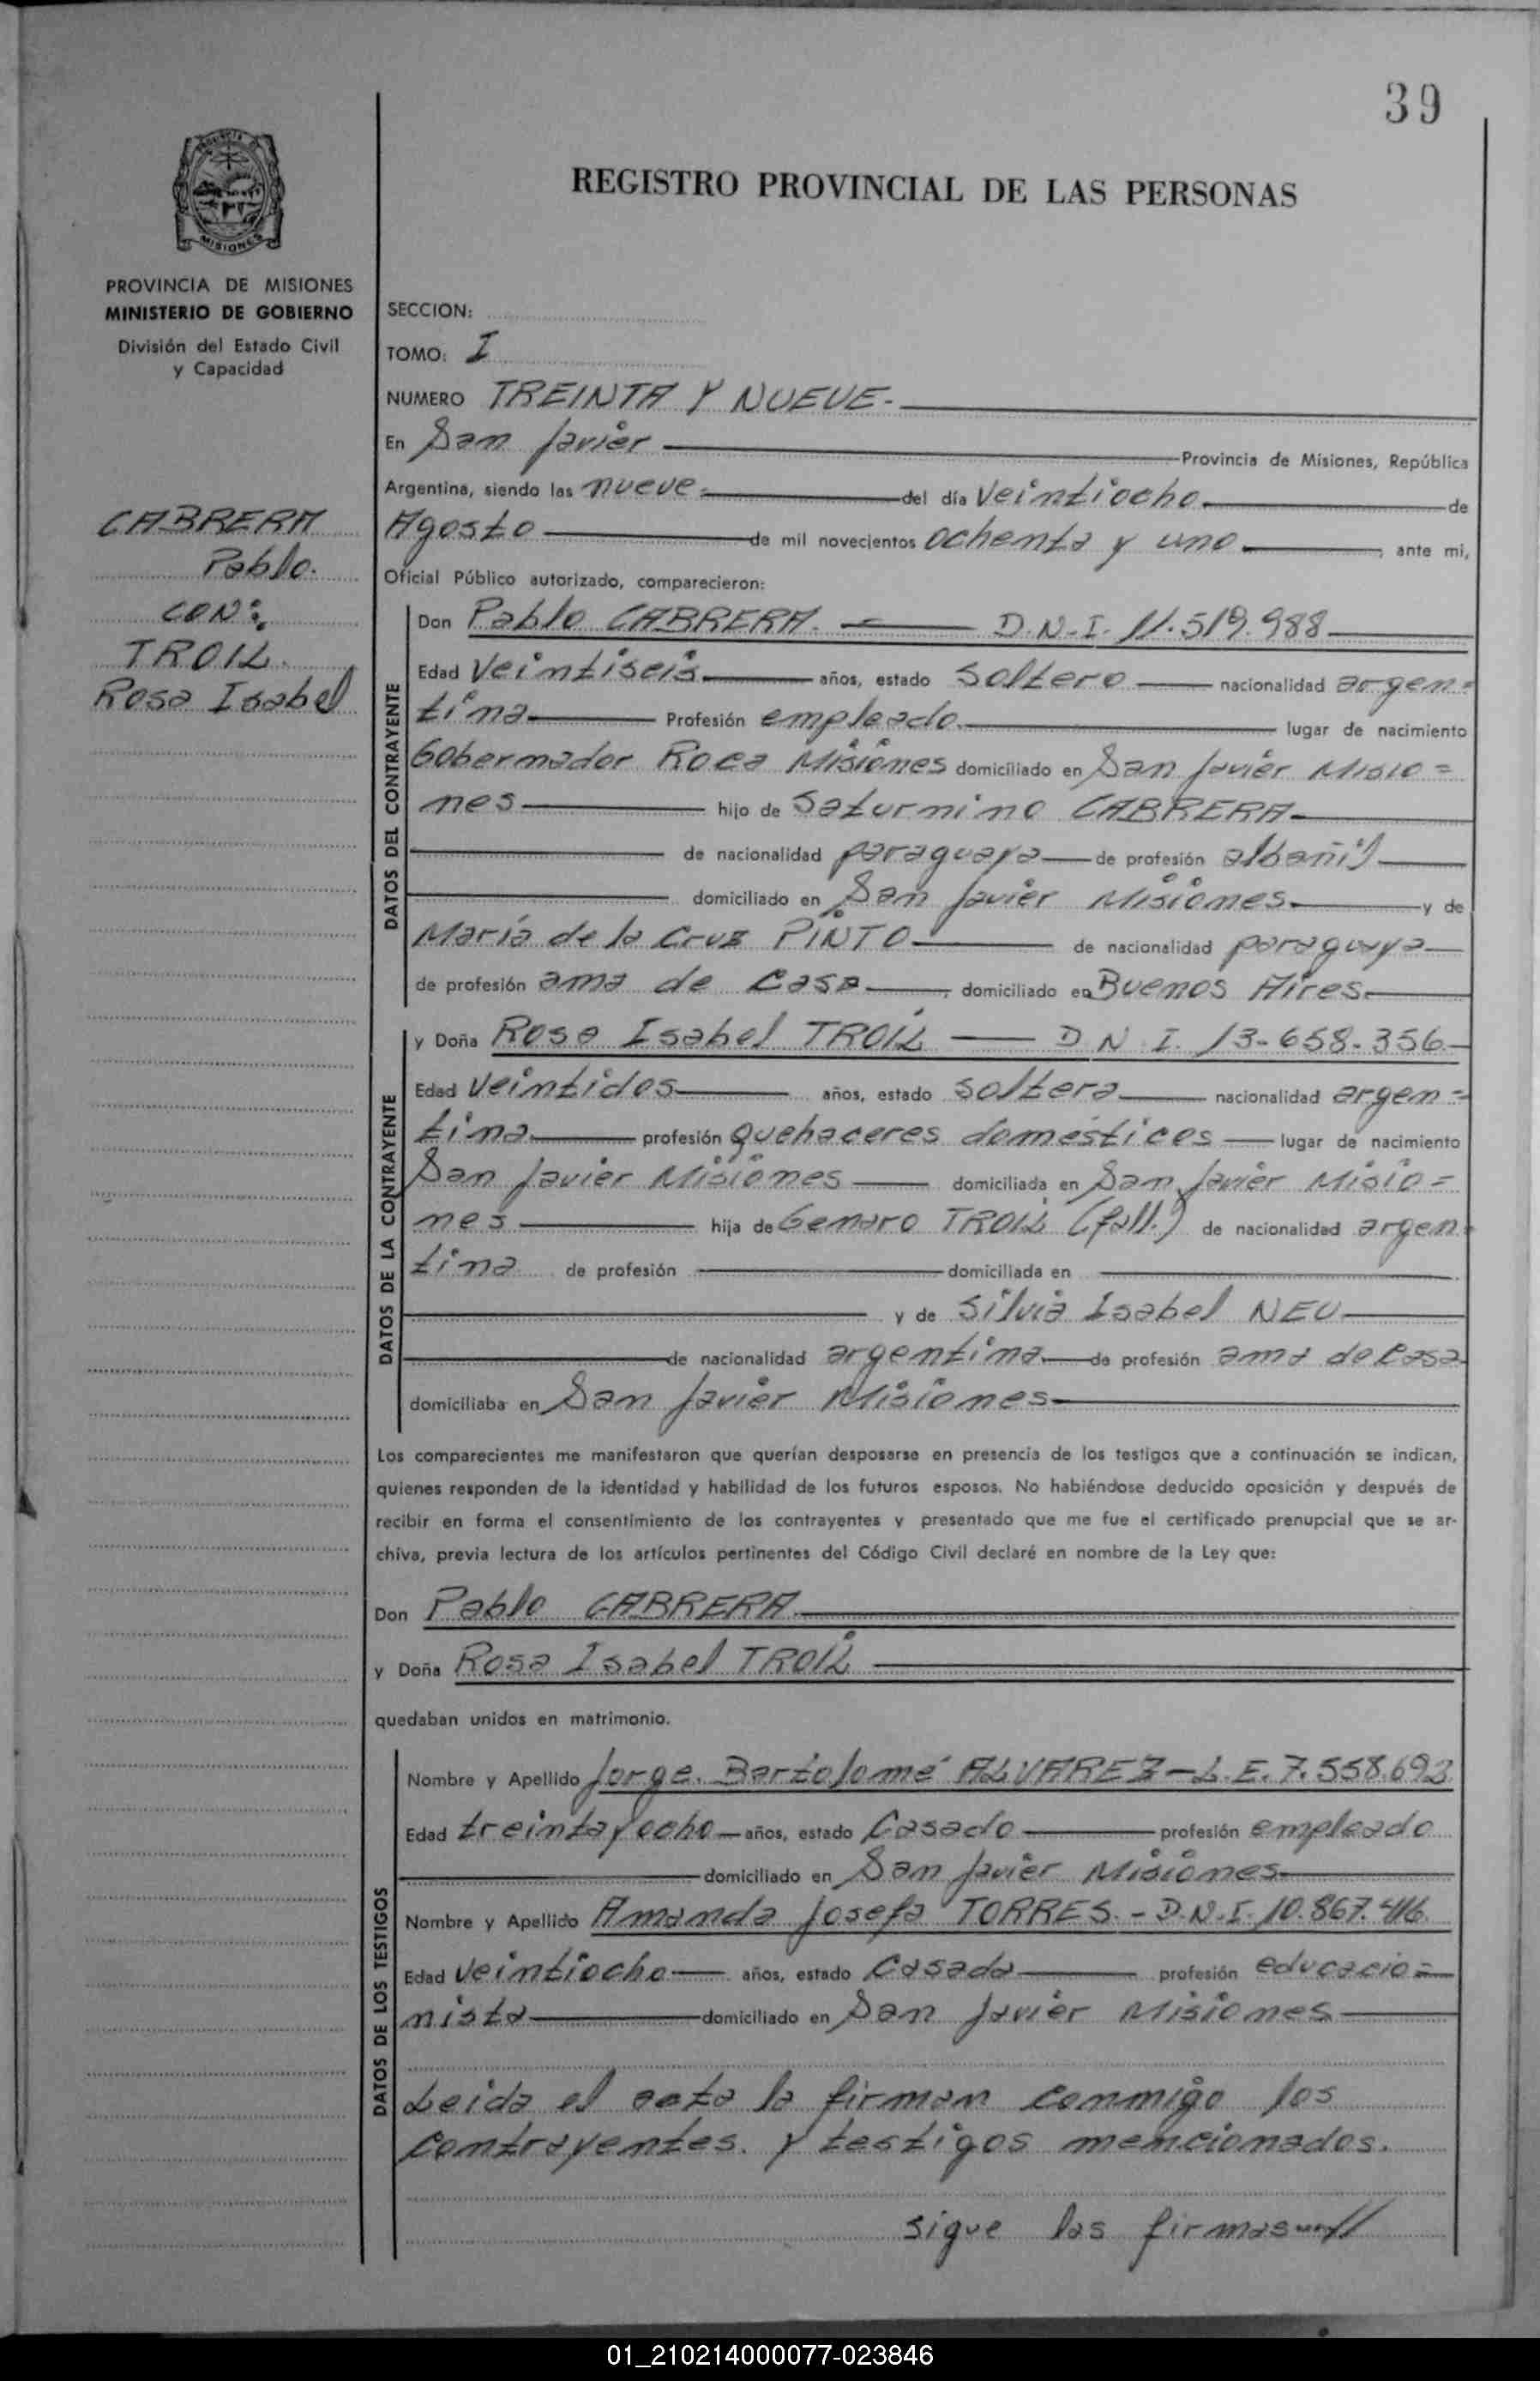 39
REGISTRO PROVINCIAL DE LAS PERSONAS
PROVINCIA DE
MISIONES
PROVINCIA DE MISIONES
MINISTERIO DE GOBIERNO
División del Estado Civil
y Capacidad
CABRERA
Pablo.
CON:
TROIL.
Rosa Isabel
SECCION:
TOMO: I
NUMERO TREINTA Y NUEVE.
En San Javier Provincia de Misiones, República
Argentina, siendo las nueve del día Veintiocho de
Agosto de mil novecientos ochenta y uno, ante mi,
Oficial Público autorizado, comparecieron:
DATOS DEL CONTRAYENTE
Don Pablo CABRERA. D.N.I. 11.519.988
Edad Veintiseis años, estado Soltero nacionalidad argen=
tina Profesión empleado lugar de nacimiento
Gobernador Roca Misiones domiciliado en San Javier Misio=
nes hijo de Saturnino CABRERA
de nacionalidad paraguaya de profesión albañil
domiciliado en San Javier Misiones y de
María de la Cruz PINTO de nacionalidad paraguaya
de profesión ama de casa, domiciliado en Buenos Aires.
DATOS DE LA CONTRAYENTE
y Doña Rosa Isabel TROIL D N I. 13-658-356
Edad Veintidos años, estado soltera nacionalidad argen=
tina profesión quehaceres domésticos lugar de nacimiento
San Javier Misiones domiciliada en San Javier Misio=
nes hija de Genaro TROIL (fall.) de nacionalidad argen=
tina de profesión domiciliada en
y de Silvia Isabel NEU
de nacionalidad argentina de profesión ama de casa
domiciliaba en San Javier Misiones
Los comparecientes me manifestaron que querían desposarse en presencia de los testigos que a continuación se indican,
quienes responden de la identidad y habilidad de los futuros esposos. No habiéndose deducido oposición y después de
recibir en forma el consentimiento de los contrayentes y presentado que me fue el certificado prenupcial que se ar-
chiva, previa lectura de los artículos pertinentes del Código Civil declaré en nombre de la Ley que:
Don Pablo CABRERA
y Doña Rosa Isabel TROIL
quedaban unidos en matrimonio.
DATOS DE LOS TESTIGOS
Nombre y Apellido Jorge Bartolomé ALVAREZ - L.E. 7.558.693
Edad treinta y ocho años, estado Casado profesión empleado
domiciliado en San Javier Misiones
Nombre y Apellido Amanda Josefa TORRES. - D.N.I. 10.867.416
Edad Veintiocho años, estado Casada profesión educacio=
nista domiciliado en San Javier Misiones
Leida el acta la firman conmigo los
contrayentes. y testigos mencionados.
sigue las firmas //
01_210214000077-023846